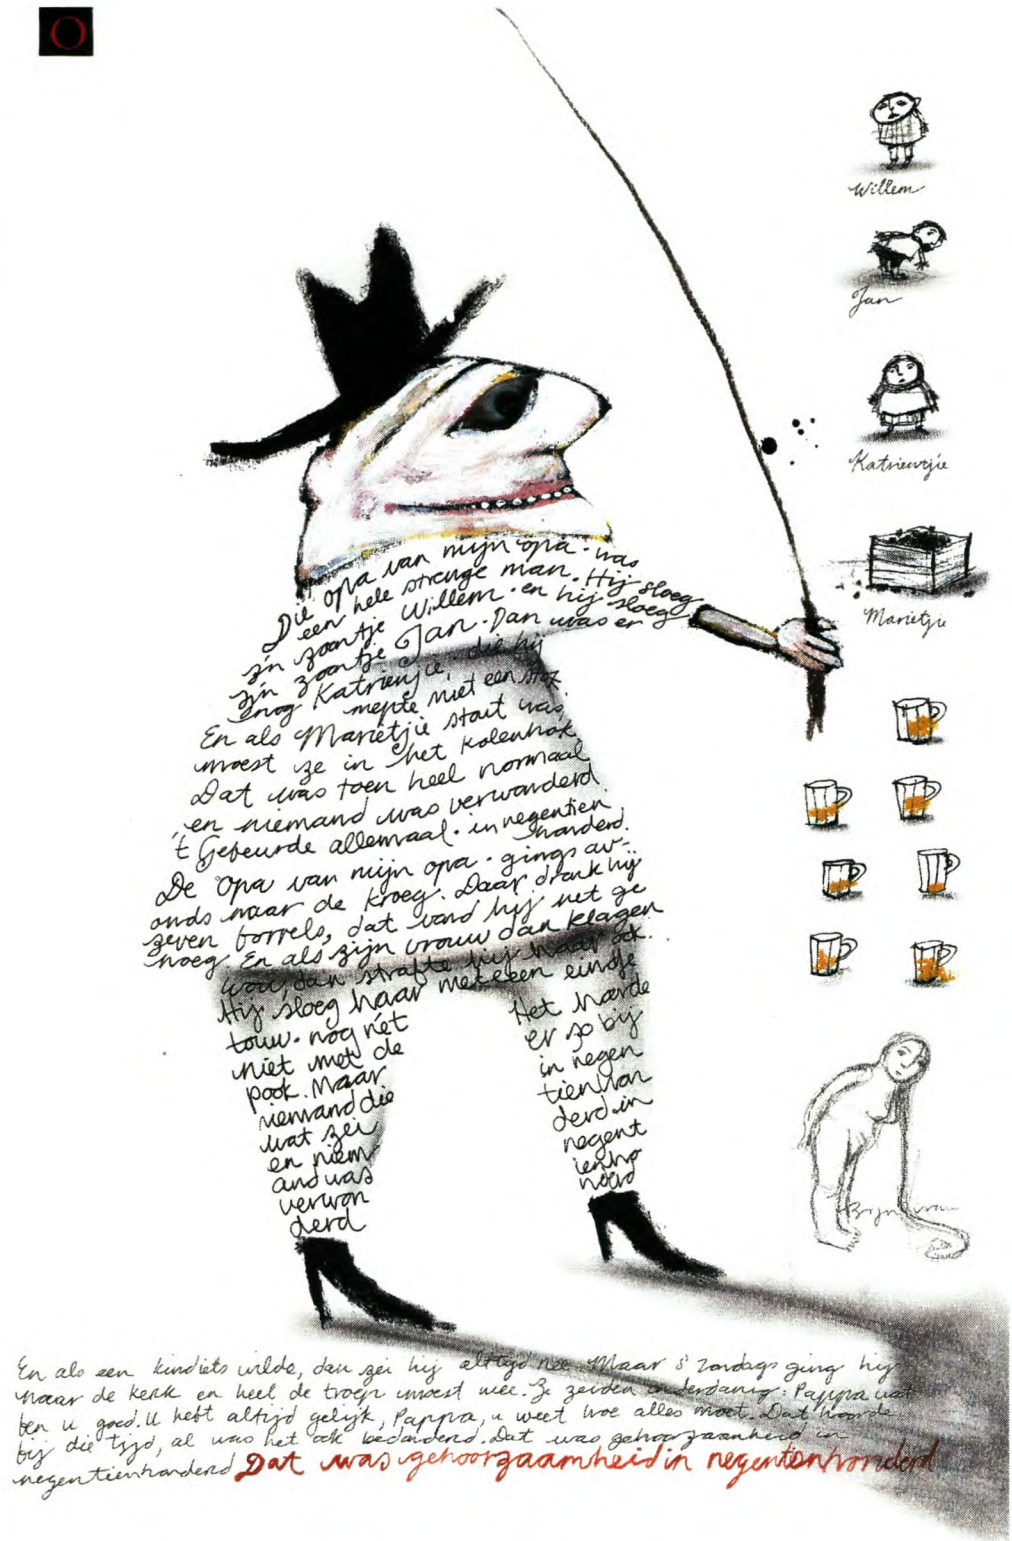 O
Willem
Jan
Katrientjie
Marietjie
Die opa van mijn opa · was
een hele strenge man. Hij sloeg
z'n zoontje Willem · en hij sloeg
z'n zoontje Jan · Dan was er
nog Katrientjie, die hij
mepte met een stok
En als Marietjie stout was,
moest ze in het kolenhok.
Dat was toen heel normaal
en niemand was verwonderd.
't Gebeurde allemaal · in negentien
honderd.
De opa van mijn opa · gings av-
onds naar de kroeg. Daar dronk hij
zeven borrels, dat vond hij net ge
noeg. En als zijn vrouw dan klagen
wou, dan strafte hij haar ook.
Hij sloeg haar met een eindje
touw · nog net
niet met de
pook. Maar
niemand die
wat zei
en niem
and was
verwon
derd
Het hoorde
er zo bij
in negen
tienhon
derd in
negent
ienho
nderd
En als een kind iets wilde, dan zei hij altijd nee. Maar 's zondags ging hij
naar de kerk en heel de troep moest mee. Ze zeiden onderdanig: Pappa wat
ben u goed. U hebt altijd gelijk, Pappa, u weet hoe alles moet. Dat hoorde
bij die tijd, al was het ook bedonderd. Dat was gehoorzaamheid in
negentienhonderd Dat was gehoorzaamheid in negentienhonderd